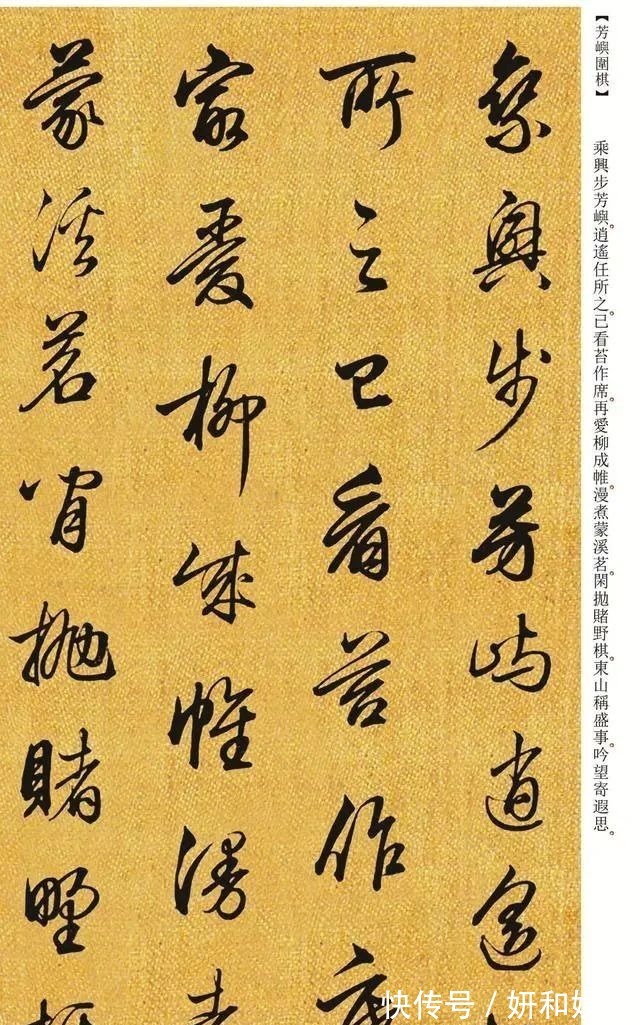 【芳嶼圍棋】 乘興步芳嶼。逍遙任所之。已看苔作席。再愛柳成帷。漫煮蒙溪茗。閑拋賭野棋。東山稱盛事。吟望寄遐思。
乘興步芳嶼逍遙
所之已看苔作席
最愛柳成帷漫煮
蒙溪茗閑拋賭野棋
快传号／妍和